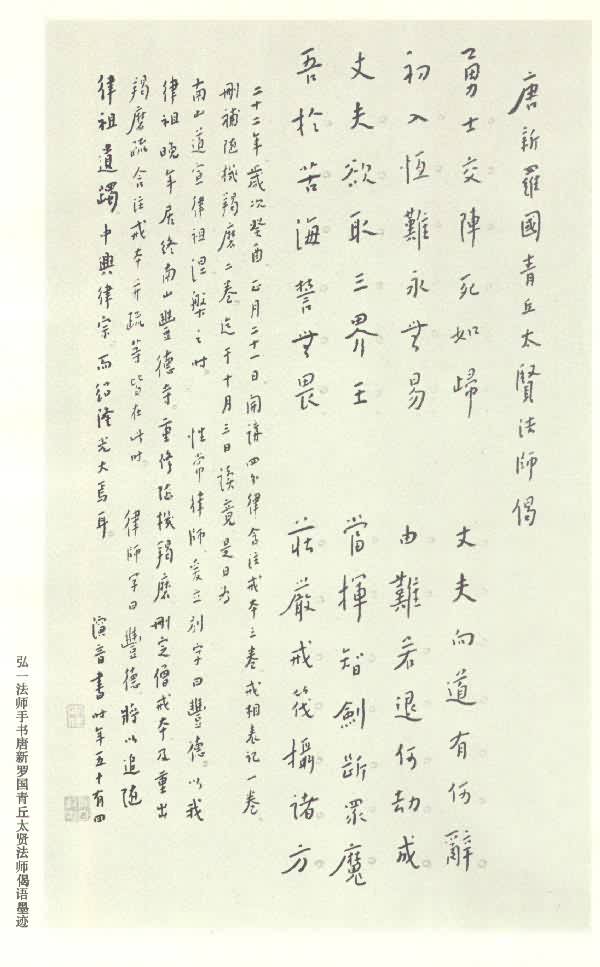 唐新羅國青丘太賢法師偈
勇士交陣死如歸 丈夫向道有何辭
初入恆難永無易 由難若退何劫成
丈夫欲取三界王 當揮智劍斷眾魔
吾於苦海誓無畏 莊嚴戒筏攝諸方
二十二年歲次癸酉正月二十一日開講四分律含注戒本三卷戒相表記一卷
刪補隨機羯磨二卷迄于十月三日談竟是日為
南山道宣律祖涅槃之時 性常律師爰立別字曰豐德以我
律祖晚年居終南山豐德寺重修隨機羯磨刪定僧戒本及重出
羯磨疏含注戒本并疏等皆在此時 律師字曰豐德將以追隨
律祖遺躅中興律宗而紹隆光大焉耳 演音書時年五十有四
弘一法师手书唐新罗国青丘太贤法师偈语墨迹